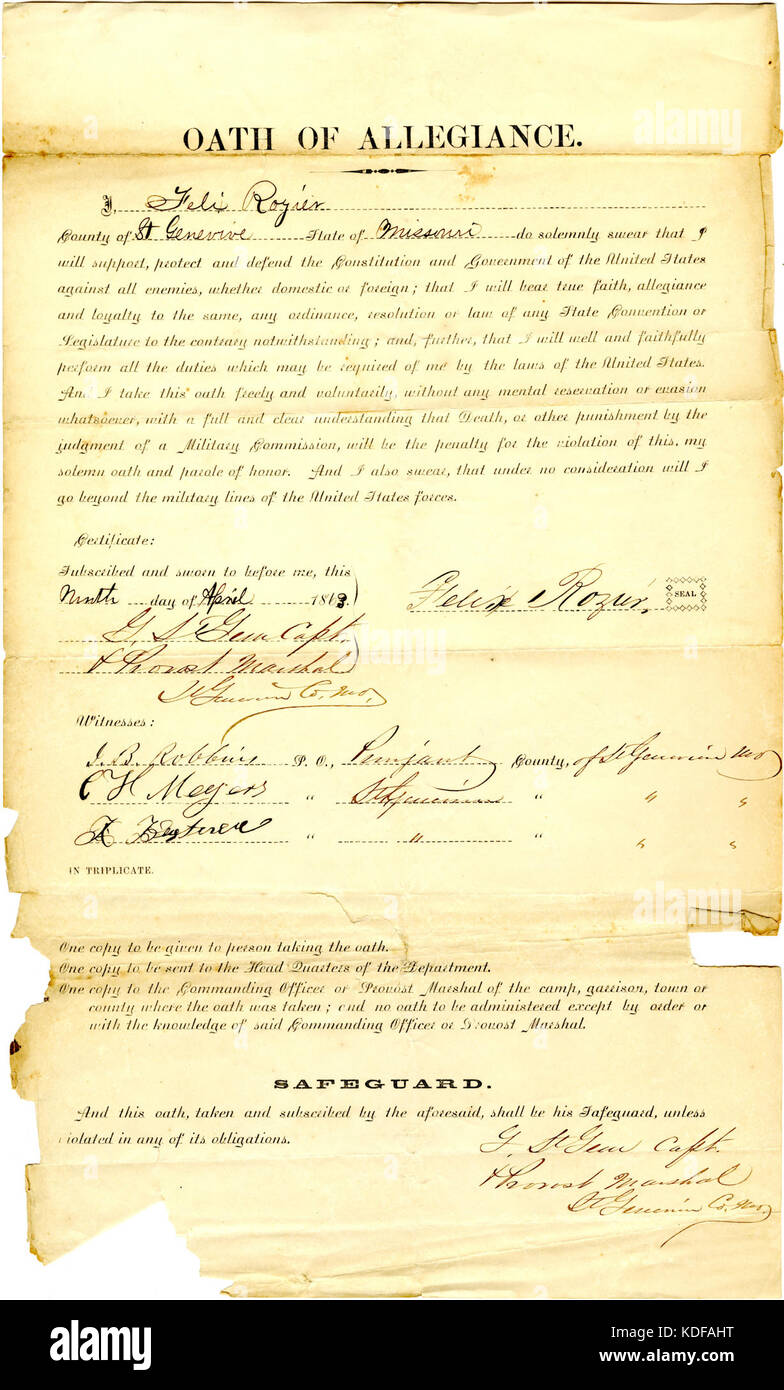 OATH OF ALLEGIANCE.
I, Felix Rozier
County of St Genevive State of Missouri do solemnly swear that I
will support, protect and defend the Constitution and Government of the United States
against all enemies, whether domestic or foreign; that I will bear true faith, allegiance
and loyalty to the same, any ordinance, resolution or law of any State Convention or
Legislature to the contrary notwithstanding; and, further, that I will well and faithfully
perform all the duties which may be required of me by the laws of the United States.
And I take this oath freely and voluntarily, without any mental reservation or evasion
whatsoever, with a full and clear understanding that Death, or other punishment by the
judgment of a Military Commission, will be the penalty for the violation of this, my
solemn oath and parole of honor. And I also swear, that under no consideration will I
go beyond the military lines of the United States forces.
Certificate:
Subscribed and sworn to before me, this
Ninth day of April 1863.
Felix Rozier, SEAL
G. St Gem Capt.
& Provost Marshal
St Genevieve Co, Mo,
Witnesses:
J. B. Robbins P. O., County, of St Genevieve Mo
C H Meyers " St Genevieve " " "
" " " " "
IN TRIPLICATE.
One copy to be given to person taking the oath.
One copy to be sent to the Head Quarters of the Department.
One copy to the Commanding Officer or Provost Marshal of the camp, garrison, town or
county where the oath was taken; and no oath to be administered except by order or
with the knowledge of said Commanding Officer or Provost Marshal.
SAFEGUARD.
And this oath, taken and subscribed by the aforesaid, shall be his Safeguard, unless
violated in any of its obligations.
G. St Gem Capt.
& Provost Marshal
St Genevieve Co, Mo.
alamy
Image ID: KDFAHT
www.alamy.com